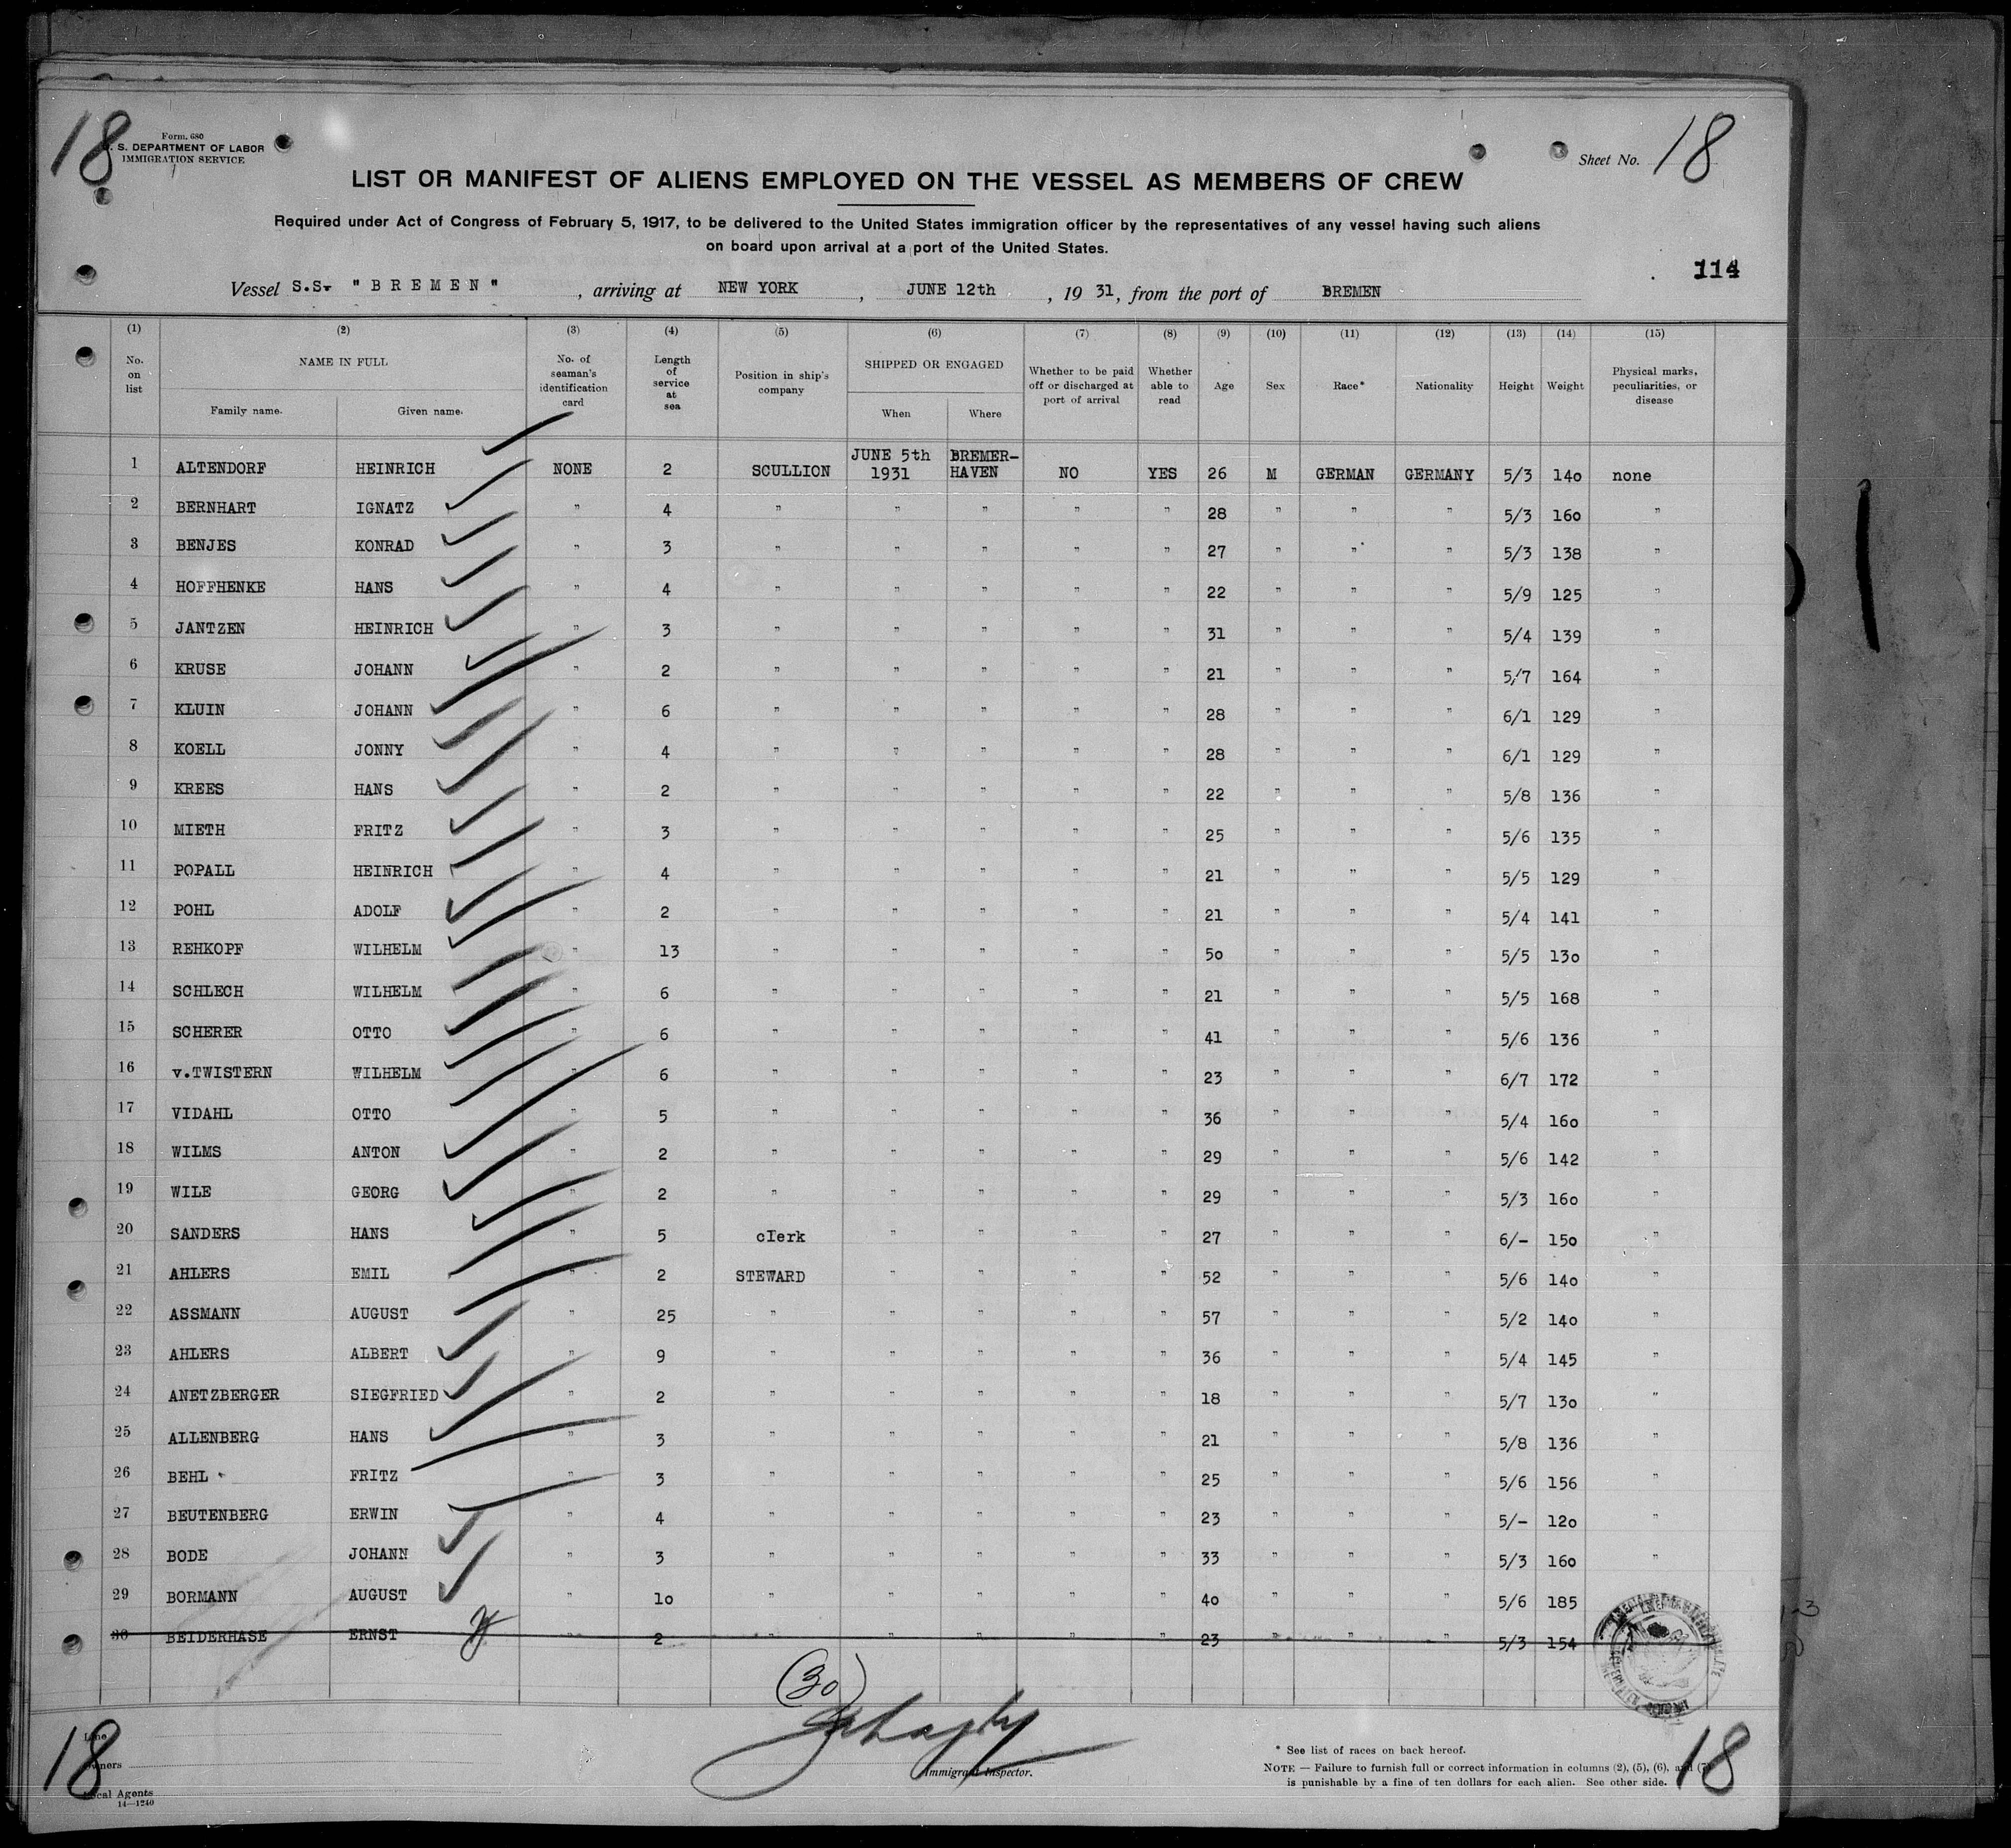 18
Form. 680
U. S. DEPARTMENT OF LABOR
IMMIGRATION SERVICE
Sheet No. 18
LIST OR MANIFEST OF ALIENS EMPLOYED ON THE VESSEL AS MEMBERS OF CREW
Required under Act of Congress of February 5, 1917, to be delivered to the United States immigration officer by the representatives of any vessel having such aliens
on board upon arrival at a port of the United States.
114
Vessel S.S. "BREMEN", arriving at NEW YORK, JUNE 12th, 1931, from the port of BREMEN
(1) (2) (3) (4) (5) (6) (7) (8) (9) (10) (11) (12) (13) (14) (15)
No. on list NAME IN FULL Family name. Given name. No. of seaman's identification card Length of service at sea Position in ship's company SHIPPED OR ENGAGED When Where Whether to be paid off or discharged at port of arrival Whether able to read Age Sex Race* Nationality Height Weight Physical marks, peculiarities, or disease
1 ALTENDORF HEINRICH NONE 2 SCULLION JUNE 5th 1931 BREMER-HAVEN NO YES 26 M GERMAN GERMANY 5/3 140 none
2 BERNHART IGNATZ " 4 " " " " " 28 " " " 5/3 160 "
3 BENJES KONRAD " 3 " " " " " 27 " " " 5/3 138 "
4 HOFFHENKE HANS " 4 " " " " " 22 " " " 5/9 125 "
5 JANTZEN HEINRICH " 3 " " " " " 31 " " " 5/4 139 "
6 KRUSE JOHANN " 2 " " " " " 21 " " " 5/7 164 "
7 KLUIN JOHANN " 6 " " " " " 28 " " " 6/1 129 "
8 KOELL JONNY " 4 " " " " " 28 " " " 6/1 129 "
9 KREES HANS " 2 " " " " " 22 " " " 5/8 136 "
10 MIETH FRITZ " 3 " " " " " 25 " " " 5/6 135 "
11 POPALL HEINRICH " 4 " " " " " 21 " " " 5/5 129 "
12 POHL ADOLF " 2 " " " " " 21 " " " 5/4 141 "
13 REHKOPF WILHELM " 13 " " " " " 50 " " " 5/5 130 "
14 SCHLECH WILHELM " 6 " " " " " 21 " " " 5/5 168 "
15 SCHERER OTTO " 6 " " " " " 41 " " " 5/6 136 "
16 v.TWISTERN WILHELM " 6 " " " " " 23 " " " 6/7 172 "
17 VIDAHL OTTO " 5 " " " " " 36 " " " 5/4 160 "
18 WILMS ANTON " 2 " " " " " 29 " " " 5/6 142 "
19 WILE GEORG " 2 " " " " " 29 " " " 5/3 160 "
20 SANDERS HANS " 5 clerk " " " " 27 " " " 6/- 150 "
21 AHLERS EMIL " 2 STEWARD " " " " 52 " " " 5/6 140 "
22 ASSMANN AUGUST " 25 " " " " " 57 " " " 5/2 140 "
23 AHLERS ALBERT " 9 " " " " " 36 " " " 5/4 145 "
24 ANETZBERGER SIEGFRIED " 2 " " " " " 18 " " " 5/7 130 "
25 ALLENBERG HANS " 3 " " " " " 21 " " " 5/8 136 "
26 BEHL FRITZ " 3 " " " " " 25 " " " 5/6 156 "
27 BEUTENBERG ERWIN " 4 " " " " " 23 " " " 5/- 120 "
28 BODE JOHANN " 3 " " " " " 33 " " " 5/3 160 "
29 BORMANN AUGUST " 10 " " " " " 40 " " " 5/6 185 "
30 BEIDERHASE ERNST " 2 " " " " " 23 " " " 5/3 154
(30)
Immigrant Inspector.
18
Line
Owners
Local Agents
14—1240
* See list of races on back hereof.
NOTE — Failure to furnish full or correct information in columns (2), (5), (6), and (7)
is punishable by a fine of ten dollars for each alien. See other side.
18